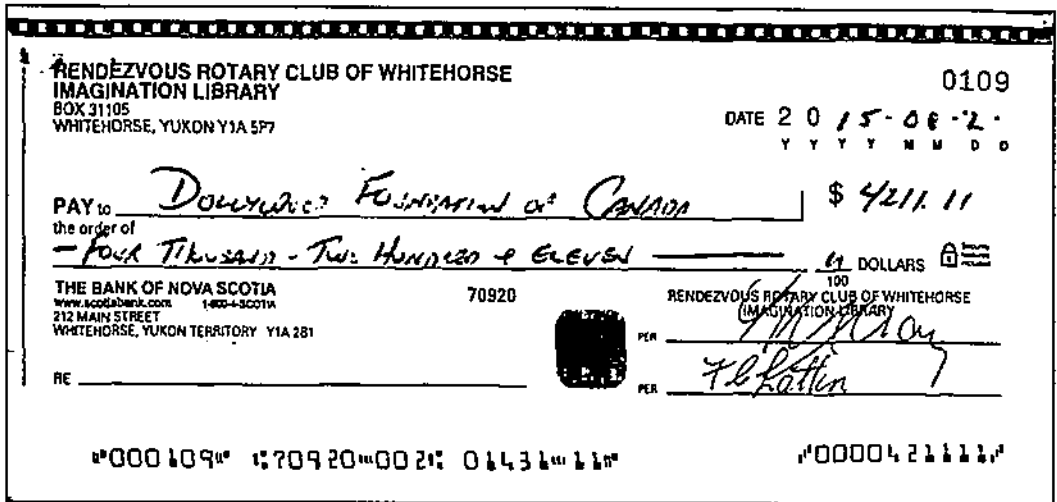 RENDEZVOUS ROTARY CLUB OF WHITEHORSE
IMAGINATION LIBRARY
BOX 31105
WHITEHORSE, YUKON Y1A 5P7
0109
DATE 2015-08-2
Y Y Y Y M M D D
PAY to the order of DOLLYWOOD FOUNDATION OF CANADA $ 4211.11
- FOUR THOUSAND - TWO HUNDRED & ELEVEN 11/100 DOLLARS
THE BANK OF NOVA SCOTIA
www.scotiabank.com 1-800-4-SCOTIA
212 MAIN STREET
WHITEHORSE, YUKON TERRITORY Y1A 2B1
70920
RENDEZVOUS ROTARY CLUB OF WHITEHORSE
IMAGINATION LIBRARY
PER
PER
RE
⑈000109⑈ ⑆70920⑉002⑆ 01431⑉11⑈ ⑈0000421111⑈